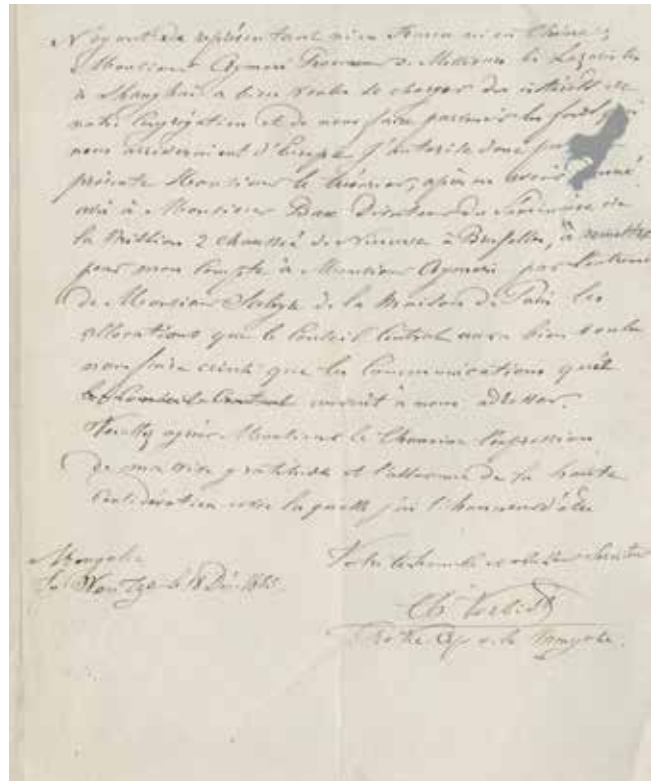 N'ayant de représentant ni en France ni en Chine,
Monsieur Aymeri Procureur de Messieurs les Lazaristes
à Shanghai a bien voulu se charger des intérêts de
notre Congrégation et de nous faire parvenir les fonds qui
nous arriveraient d'Europe. J'autorise donc par
présente Monsieur le trésorier, après en avoir donné
avis à Monsieur Bax Directeur du Séminaire de
la Mission 2 chaussée de Ninove à Bruxelles, à remettre
pour mon compte à Monsieur Aymeri par l'entremise
de Monsieur de la Maison de Paris les
allocations que le Conseil Central aura bien voulu
nous faire ainsi que les Communications qu'il
le Conseil Central aurait à nous adresser.
Veuillez agréer Monsieur le l'expression
de ma vive gratitude et l'assurance de la haute
Considération avec laquelle j'ai l'honneur d'être
Votre très humble et obéissant Serviteur
Mongolie
le 18 Déc.
Th. Verbist